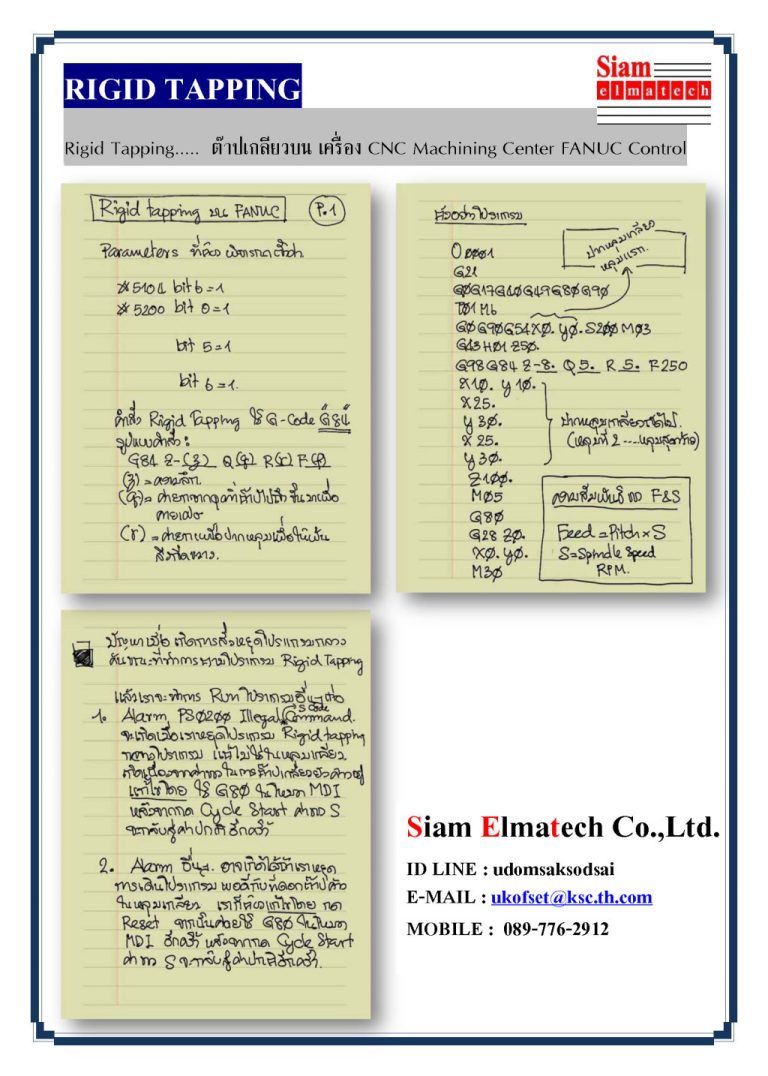 RIGID TAPPING
Siam
elmatech
Rigid Tapping..... ต๊าปเกลียวบน เครื่อง CNC Machining Center FANUC Control
Rigid tapping บน FANUC
P.1
Parameters ที่ต้อง
5104 bit 6 = 1
5200 bit 0 = 1
bit 5 = 1
bit 6 = 1.
คำสั่ง Rigid Tapping ใช้ G-Code G84
รูปแบบคำสั่ง :
G84 Z-(z) Q(q) R(r) F(f)
(z) = ความลึก
(q) =
(r) =
ตัวอย่างโปรแกรม
ปากหลุมเกลียว
หลุมแรก.
O0001
G21
G0G17G40G49G80G90
T01 M6
G0G90G54X0. Y0. S200 M03
G43 H01 Z50.
G98G84 Z-8. Q5. R5. F250
X10. Y10.
X25.
Y30.
X25.
Y30.
ปากหลุมเกลียวถัดไป.
(หลุมที่ 2 ....หลุมสุดท้าย)
Z100.
M05
G80
G28 Z0.
X0. Y0.
M30
ความสัมพันธ์ ของ F&S
Feed = Pitch × S
S = Spindle Speed
RPM.
ปัญหาเมื่อ เกิดการสั่งหยุดโปรแกรมกลาง
คันขณะที่ทำการ โปรแกรม Rigid Tapping
แล้วเราจะทำการ Run โปรแกรมอื่นๆต่อ
1. Alarm PS0200 Illegal S Code Command.
จะเกิดเมื่อเราหยุดโปรแกรม Rigid tapping
กลางโปรแกรม แต่ไม่ใช่ในหลุมเกลียว
เกิดเนื่องจากค่า ในการต๊าปเกลียวยังค้างอยู่
แก้ไขโดย ใช้ G80 ในโหมด MDI
หลังจากกด Cycle Start ค่าของ S
จะกลับสู่ค่าปกติอีกครั้ง
2. Alarm อื่นๆ. อาจเกิดได้ถ้าเราหยุด
การเดินโปรแกรม พอดีกับที่ดอกต๊าปค้าง
ในหลุมเกลียว เราก็ต้องแก้ไขโดย กด
Reset จากนั้นค่อยใช้ G80 ในโหมด
MDI อีกครั้ง หลังจากกด Cycle Start
ค่าของ S จะกลับสู่ค่าปกติอีกครั้ง.
Siam Elmatech Co.,Ltd.
ID LINE : udomsaksodsai
E-MAIL : ukofset@ksc.th.com
MOBILE : 089-776-2912